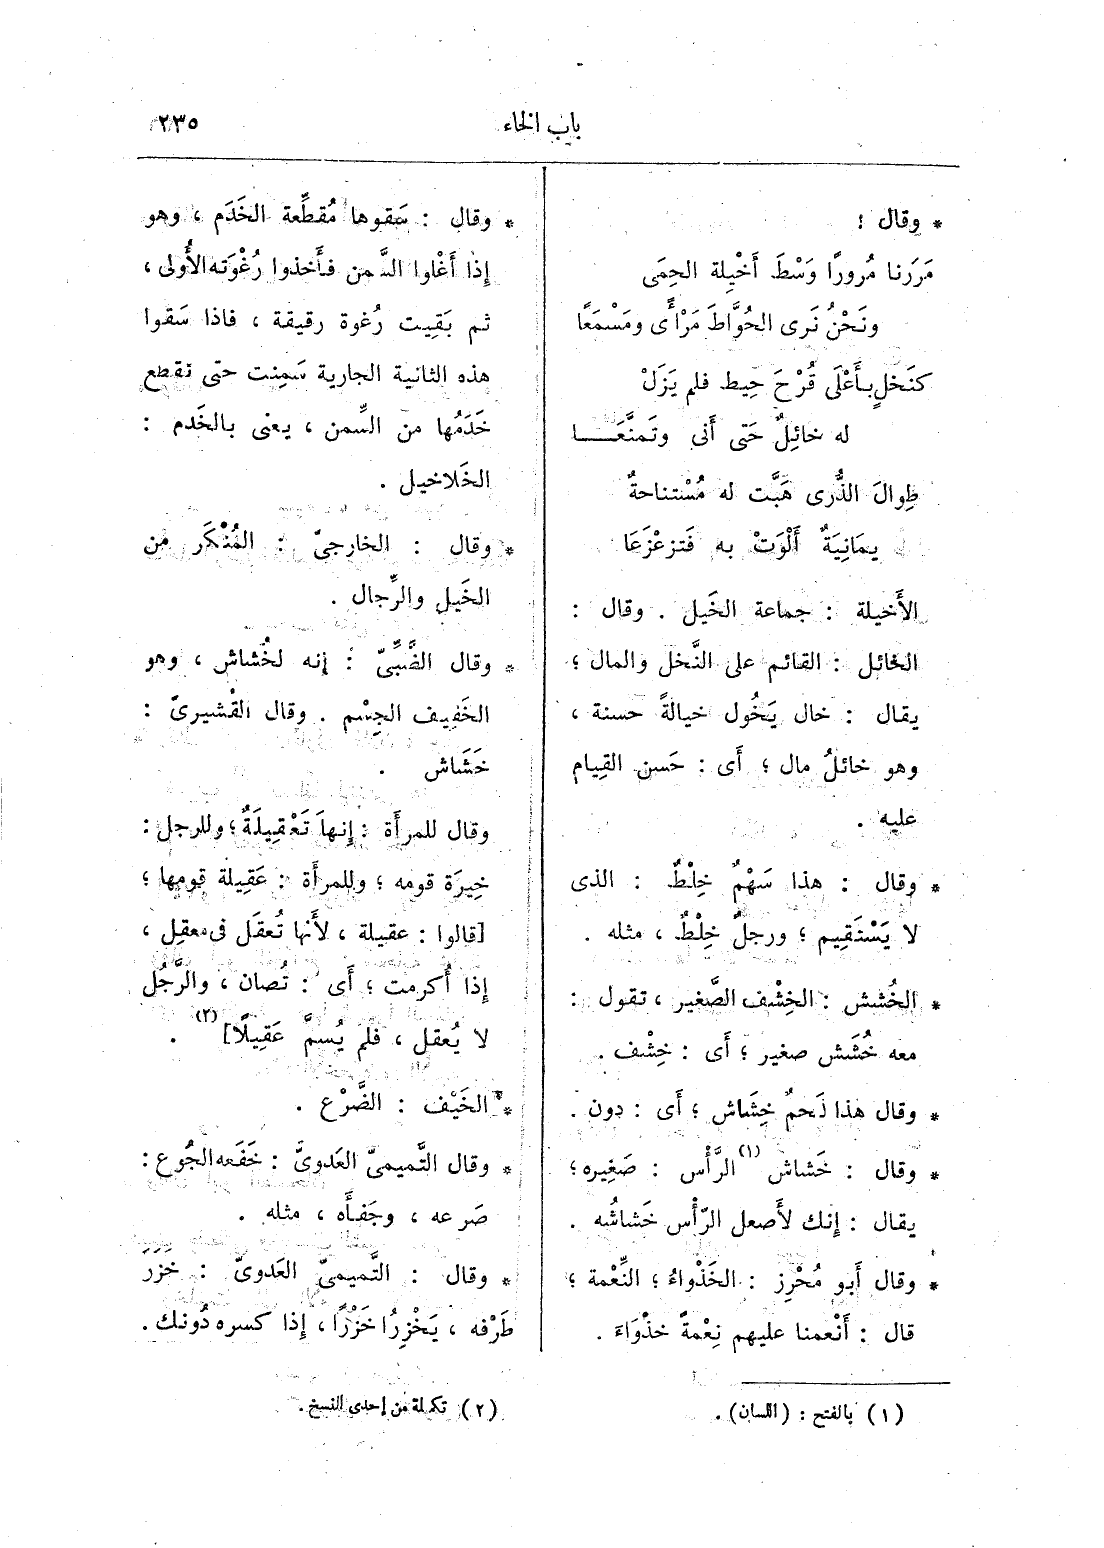 باب الخاء
٢٣٥
* وقال :
مَرَرنا مُرورًا وَسْطَ أَخْيِلة الحِمَى
ونَحْنُ نَرى الحُوَّاطَ مَرْأًى ومَسْمَعًا
كنَخلٍ بأَعْلَى قُرْحَ حِيط فلم يَزَلْ
له خائِلٌ حَتى أَنى وتَمنَّعَا
طِوالَ الذُّرى هَبَّت له مُسْتناحةٌ
يمَانِيَةٌ أَلْوَتْ به فَتزعْزَعَا
الأَخيلة : جماعة الخَيل . وقال :
الخائل : القائم على النَّخل والمال ؛
يقال : خال يَخُول خيالةً حسنة ،
وهو خائلُ مال ؛ أَى : حَسن القِيام
عليه .
* وقال : هذا سَهْمٌ خِلْطٌ : الذى
لا يَسْتَقِيم ؛ ورجلٌ خِلْطٌ ، مثله .
* الخُشش : الخِشْف الصَّغير ، تقول :
معه خُشَش صغير ؛ أَى : خِشْف .
* وقال هذا لَحمٌ خِشَاش ؛ أَى : دون .
* وقال : خَشاش (١) الرَّأْس : صَغِيره ؛
يقال : إنك لأَصعل الرّأْس خَشاشُه .
* وقال أَبو مُحْرِز : الخَذْواءُ ؛ النِّعْمة ؛
قال : أَنْعمنا عليهم نِعْمةً خذْوَاءَ .
* وقال : سَقوها مُقطِّعة الخَدَم ، وهو
إِذا أَغْلوا السَّمن فأَخذوا رُغْوَته الأُولى ،
ثم بَقِيت رُغوة رقيقة ، فاذا سَقوا
هذه الثانية الجارية سَمِنت حتى تقطع
خَدَمُها من السِّمن ، يعنى بالخَدم :
الخَلاخيل .
* وقال : الخارجىّ : المُنْكَر من
الخَيل والرِّجال .
* وقال الضَّبِّىّ : إنه لخُشاش ، وهو
الخَفِيف الجِسْم . وقال القْشيرىّ :
خَشَاش .
وقال للمرأَة : إِنهاَ تَعْقِيلَةٌ ؛ وللرجل :
خِيرَة قومه ؛ وللمرأَة : عَقِيلة قومها ؛
[قالوا : عقيلة ، لأَنها تُعقَل فى معقِل ،
إِذا أُكرمت ؛ أَى : تُصان ، والرَّجُل
لا يُعقل ، فلم يُسمَّ عَقِيلًا] (٢) .
* الخَيْف : الضَّرْع .
* وقال التَّميمىّ العَدوىّ : خَفَعه الجُوع :
صَرعه ، وجَفأَه ، مثله .
* وقال : التَّميمىّ العَدوىّ : خَزَرَ
طَرْفه ، يَخْزِرُا خَزْرًا ، إِذا كسره دُونك .
(١) بالفتح : (اللسان) .
(٢) تكملة من إحدى النسخ .